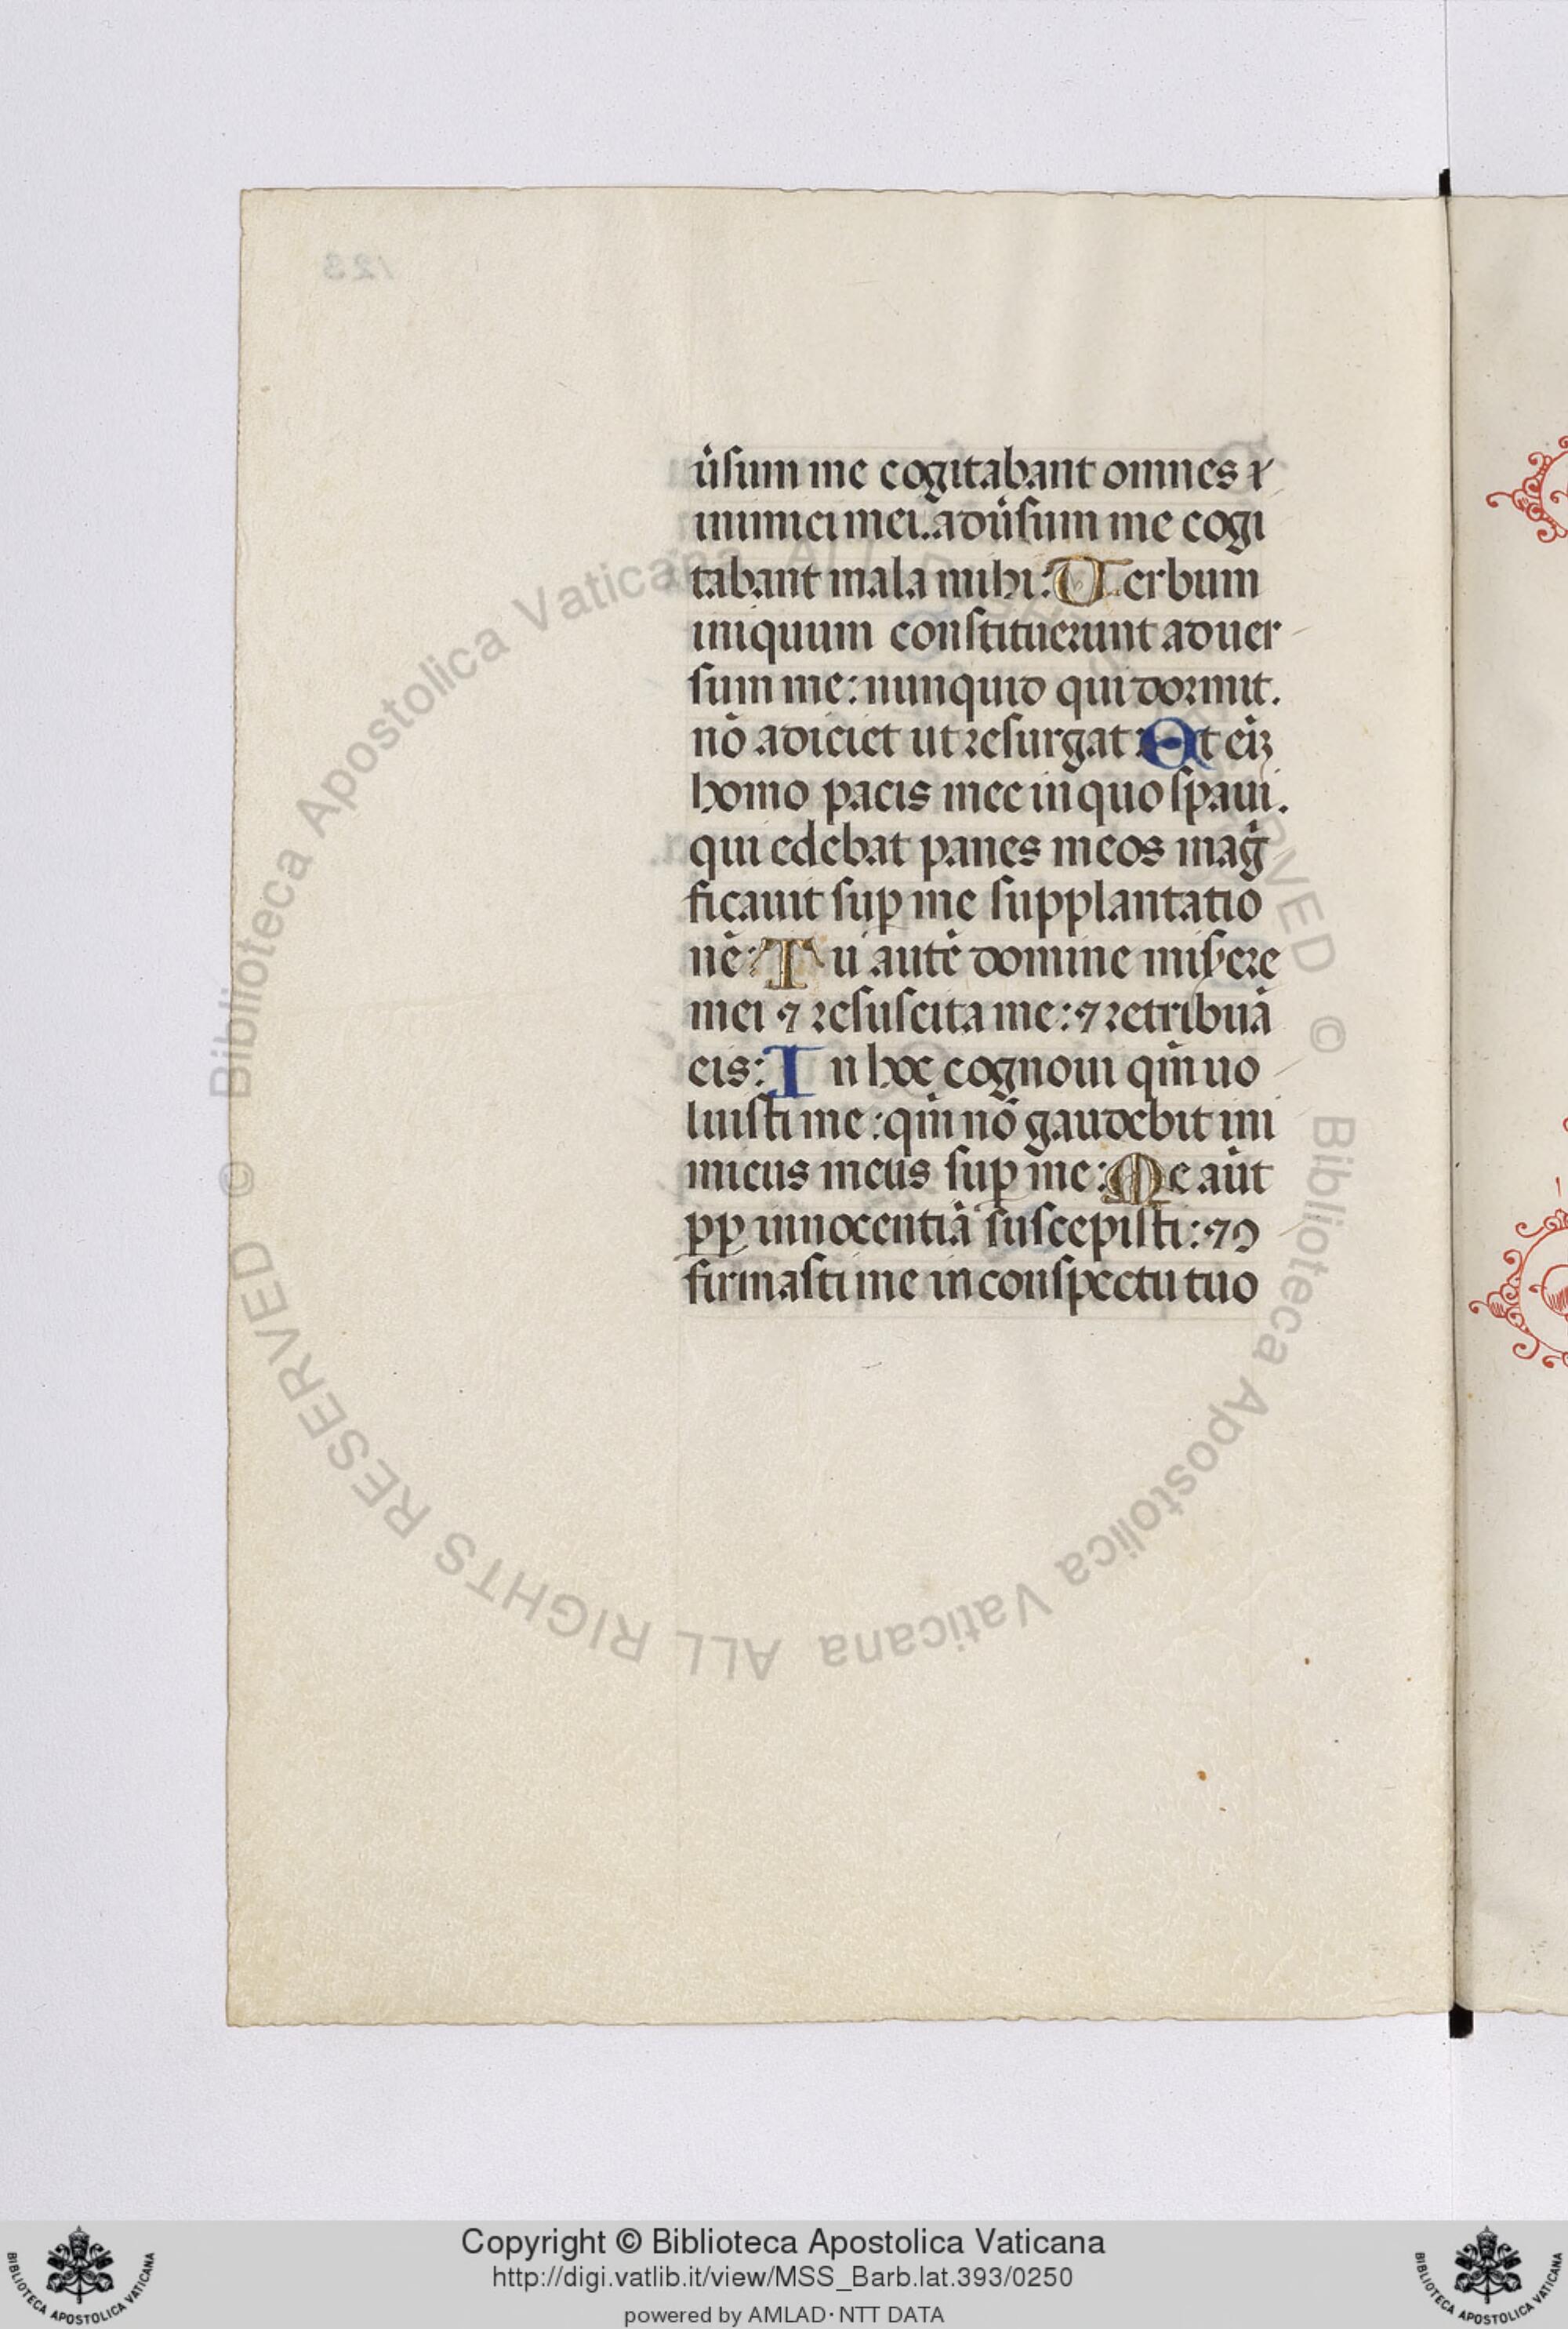 123
ů̉sum me cogitabant omnes ı
inimici mei. adu̓sum me cogi
tabant mala mihi: Uerbum
iniquum constituerunt aduer
sum me: nunquid qui dormit.
nō adiciet ut resurgat: Et eī
homo pacis mee in quo sp̄aui.
qui edebat panes meos mag̊
ficauit sup̱ me supplantatio
nē: Tu autē domine miẜere
mei ⁊ resuscita me: ⁊ retribuā
eis: In hoc cognoui qm̄ uo
luisti me: qm̄ nō gaudebit ini
micus meus sup̱ me: Me aūt
pp̱ innocentiā suscepisti: ⁊ ↄ
firmasti me in conspectu tuo
© Biblioteca Apostolica Vaticana ALL RIGHTS RESERVED © Biblioteca Apostolica Vaticana ALL RIGHTS RESERVED
Copyright © Biblioteca Apostolica Vaticana
http://digi.vatlib.it/view/MSS_Barb.lat.393/0250
powered by AMLAD·NTT DATA
BIBLIOTECA APOSTOLICA VATICANA
BIBLIOTECA APOSTOLICA VATICANA